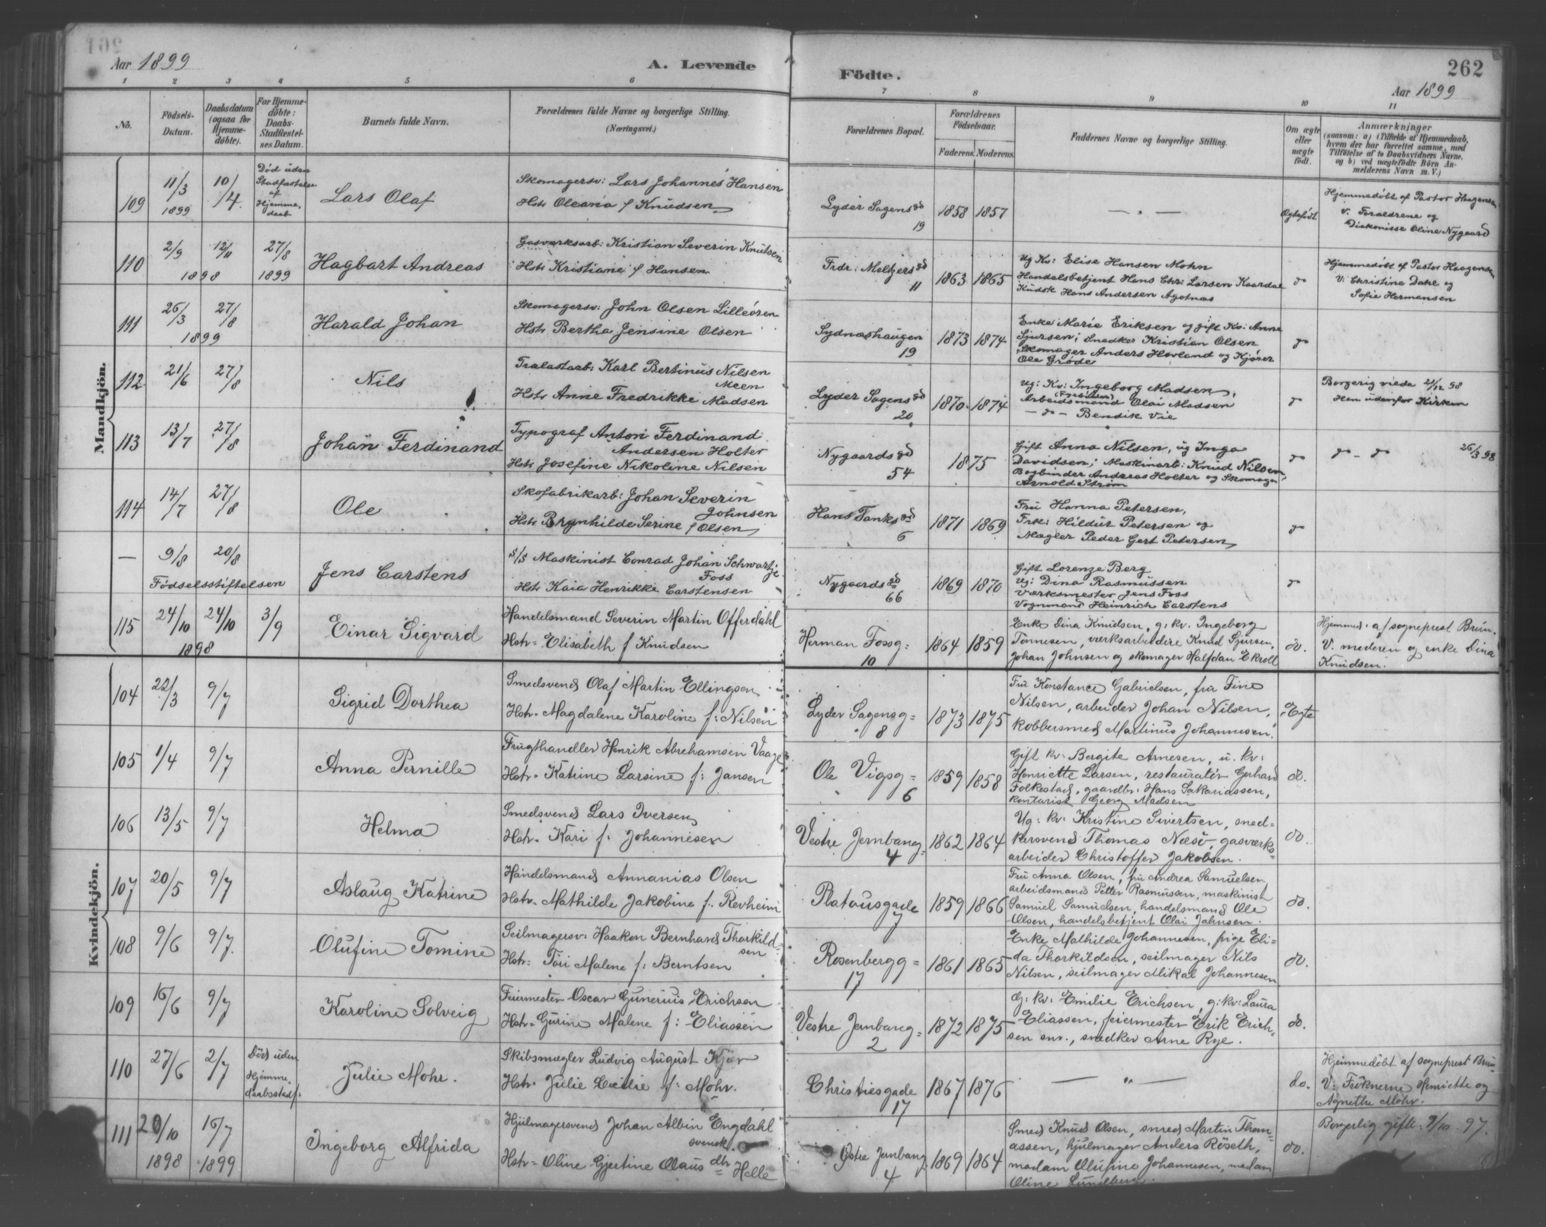 Aar 1899
A. Levende
Födte.
262
Aar 1899
1 2 3 4 5 6 7 8 9 10 11
No.
Födsels-Datum.
Daabsdatum (ogsaa for Hjemme-döbte).
For Hjemme-döbte: Daabs-Stadfæstel-ses Datum.
Barnets fulde Navn.
Forældrenes fulde Navne og borgerlige Stilling. (Næringsvei.)
Forældrenes Bopæl.
Forældrenes Födselsaar.
Faderens. Moderens.
Faddernes Navne og borgerlige Stilling.
Om ægte eller uægte födt.
Anmærkninger
Mandkjön.
109 11/3 1899 10/4 Död uden Stadfæstelse af Hjemme daab
Lars Olaf
Skomagersv: Lars Johannes Hansen
Hstr Oleana f Knudsen
Lyder Sagensgd 19
1858 1857
— " —
Ægtefödt
Hjemmedöbt af Pastor Haagensen
V. Foraldrene og
Diakonisse Oline Nygaard
110 2/9 12/11 1898 27/8 1899
Hagbart Andreas
Gasværksarb: Kristian Severin Knutsen
Hstr Kristiane f Hansen
Frdr: Meltzersgd 11
1863 1865
Ug Kv: Elise Hansen Mohn
Handelsbetjent Hans Chr: Larsen Kaardal
Kudsk Hans Andersen Agotnæs
do
Hjemmedöbt af Pastor Haagensen
V: Christine Dahl og
Sofie Hermansen
111 26/3 27/8 1899
Harald Johan
Skomagersv: John Olsen Lilleören
Hstr Bertha Jensine Olsen
Sydnæshaugen 19
1873 1874
Enke Marie Eriksen og gift Kv: Anne
Sjursen; Snedker Kristian Olsen
Skomager Anders Hovland og Kjörer
Ole Gröde
do
112 21/6 27/8
Nils
Trælastarb: Karl Bertinus Nilsen
Meen
Hstr Anne Fredrikke Madsen
Lyder Sagensgd 20
1870 1874
Ug: Kv: Ingeborg Madsen,
Arbeidsmand Olai Madsen
— do — Bendik Vie
do
Borgerlig viede 21/12 98
Hun udenfor Kirken
113 13/7 27/8
Johan Ferdinand
Typograf Anton Ferdinand
Andersen Holter
Hstr Josefine Nikoline Nilsen
Nygaardsgd 54
1875
Gift Anna Nilsen, ug Inga
Davidsen; Maskinarb: Knud Nilsen,
Bogbinder Andreas Holter og Skomager
Arnold Ström
do
do — do 26/3 98
114 14/7 27/8
Ole
Skofabrikarb: Johan Severin
Johnsen
Hstr Brynhilde Serine f Olsen
Hans Tanksgd 6
1871 1869
Fru Hanna Petersen,
Frk: Hildur Petersen og
Mægler Peder Gert Petersen
do
— 9/8 20/8
Födselsstiftelsen
Jens Carstens
S/S Maskinist Conrad Johan Schwartze
Foss
Hstr Kaia Henrikke Carstensen
Nygaardsgd 66
1869 1870
Gift Lorenze Berg
Ug: Dina Rasmussen
Værksmester Jens Foss
Vognmand Heinrich Carstens
do
115 24/10 24/10 1898 3/9
Einar Sigvard
Handelsmand Severin Martin Offerdahl
Hstr. Elisabeth f Knudsen
Herman Fossg: 10
1864 1859
Enke Lina Knudsen, g: kv: Ingeborg
Tönnesen, værksarbeidere Knud Sjursen,
Johan Johnsen og skomager Halfdan Ekroll
do.
Hjemmed. af sogneprest Brun.
V. moderen og enke Lina
Knudsen.
Kvindekjön.
104 22/3 9/7
Sigrid Dorthea
Smedsvend Olaf Martin Ellingsen
Hstr. Magdalene Karoline f: Nilsen
Lyder Sagensg= 8
1873 1875
Fru Konstance Gabrielsen, fru Fine
Nilsen, arbeider Johan Nilsen,
kobbersmed Martinus Johannesen.
Ægte
105 1/4 9/7
Anna Pernille
Frugthandler Henrik Abrahamsen Vaage
Hstr. Katrine Larsine f: Jansen
Ole Vigsg= 6
1859 1858
Gift kv: Bergite Arnesen, u. kv:
Henriette Larsen, restauratör Gerhard
Folkestad, gaardbr: Hans Sakariassen,
kontorist Georg Madsen
do.
106 13/5 9/7
Helma
Smedsvend Lars Iversen
Hstr. Kari f: Johannesen
Vestre Jernbaneg= 4
1862 1864
Ug: kv: Kristine Sivertsen, sned-
kersvend Thomas Næsö, gasværks-
arbeider Christoffer Jakobsen.
do.
107 20/5 9/7
Aslaug Katrine
Handelsmand Annanias Olsen
Hstr. Mathilde Jakobine f: Revheim
Platousgade 7
1859 1866
Fru Anna Olsen, fru Andrea Samuelsen,
arbeidsmand Petter Rasmussen, maskinist
Samuel Samuelsen, handelsmand Ole
Olsen, handelsbetjent Olai Jahnsen.
do.
108 9/6 9/7.
Olufine Tomine
Seilmagersv: Haakon Bernhard Thorkild-
sen
Hstr. Tori Malene f: Berntsen
Rosenbergg= 17
1861 1865
Enke Mathilde Johannesen, pige Eli-
da Thorkildsen, seilmager Nils
Nilsen, seilmager Mikal Johannesen
do.
109 16/6 9/7
Karoline Solveig
Feiermester Oscar Gunerius Erichsen
Hstr. Gurine Malene f: Eliassen
Vestre Jernbaneg= 2
1872 1875
G: kv: Emilie Erichsen, g: kv: Laura
Eliassen, feiermester Erik Erich-
sen snr., snedker Arne Rye.
do.
110 27/6 2/7 Död uden Hjemme daabsstadf.
Julie Mohr.
Skibsmægler Ludvig August Kjær
Hstr. Julie Cecilie f: Mohr.
Christiesgade 17
1867 1876
— " —
do.
Hjemmedöbt af sogneprest Brun
V: Fröknerne Henriette og
Agnethe Mohr.
111 20/10 1898 16/7 1899
Ingeborg Alfrida
Hjulmagersvend Johan Albin Engdahl
svensk
Hstr. Oline Gjertine Olausdtr Helle
Östre Jernbaneg 4
1869 1864
Smed Knud Olsen, smed Martin Thom-
assen, hjulmager Anders Röseth,
madam Olufine Johannesen, madam
Oline Lundberg.
do.
Borgerlig gifte 9/10 97.